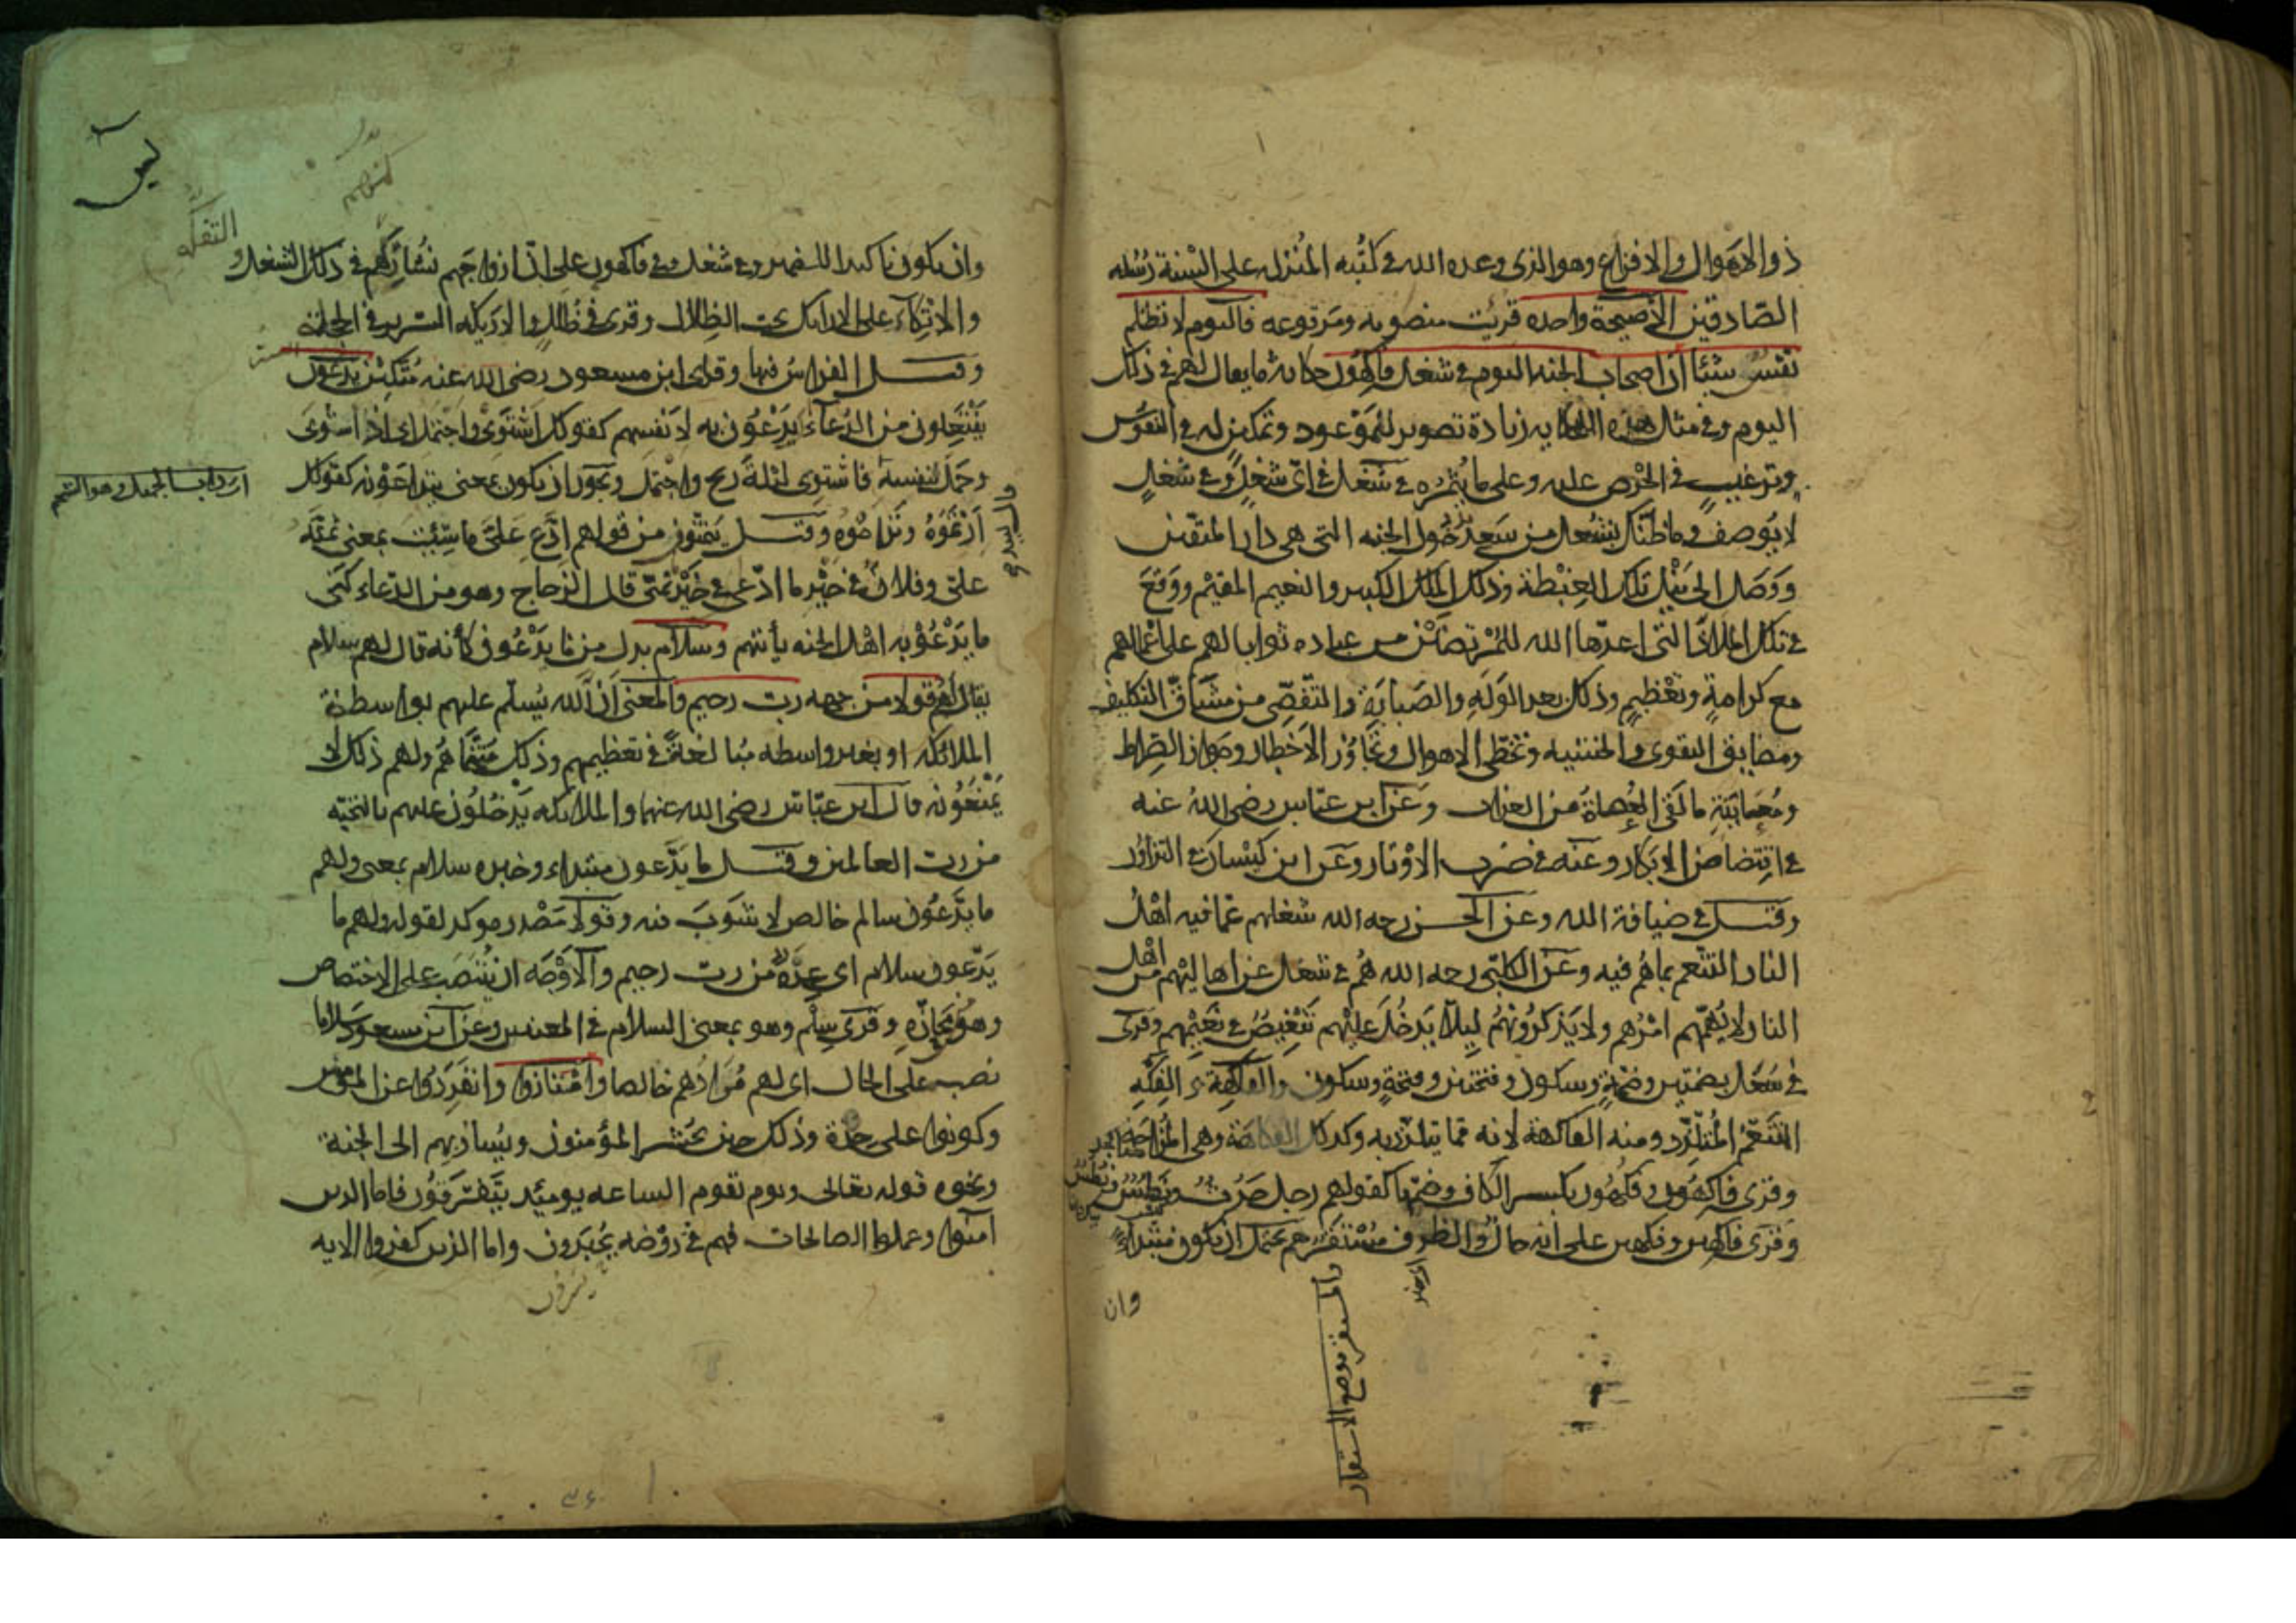 ذو الاهوال والافزاع وهو الذي وعده الله في كتبه المنزله على السنة رسله
الصادقين الا صيحة واحده قرئت منصوبه ومرفوعه فاليوم لا تظلم
نفس شيئا ان اصحاب الجنه اليوم في شغل فاكهون حكاية ما يقال لهم في ذلك
اليوم وفي مثال هذه الحكايه زيادة تصوير للموعود وتمكين له في النفوس
وترغيب في الحرص عليه وعلى ما يثمره في شغل في اي شغل وفي شغل
لا يوصف وما ظنك بشغل من سعد بدخول الجنه التي هي دار المتقين
ووصل الى نيل تلك الغبطة وذلك الملك الكبير والنعيم المقيم ووقع
في تلك الملاذ التي اعدها الله للمرتضين من عباده ثوابا لهم على اعمالهم
مع كرامة وتعظيم وذلك بعد الوله والصبابة والتفصي من مشاق التكليف
ومضايق التقوى والخشيه وتخطي الاهوال وتجاوز الاخطار وجواز الصراط
ومعاينة ما لقى العصاة من العذاب وعن ابن عباس رضي الله عنه
في افتضاض الابكار وعنه في ضرب الاوتار وعن ابن كيسان في التزاور
وقيل في ضيافة الله وعن الحسن رحمه الله شغلهم عما فيه اهل
النار التنعم بما هم فيه وعن الكلبي رحمه الله هم في شغل عن اهاليهم من اهل
النار لا يهمهم امرهم ولا يذكرونهم ليلا يدخل عليهم تنغيص في نعيمهم وقرئ
في شغل بضمتين وضمة وسكون وفتحتين وفتحة وسكون والفاكه والفكه
المتنعم المتلذذ ومنه الفاكهة لانه مما يتلذذ به وكذلك الفكاهة وهي المزاحة
وقرئ فاكهون وفكهون بكسر الكاف وضمها كقولهم رجل حدث
وقرئ فاكهين وفكهين على انه حال والظرف مستقر هم يحتمل ان يكون مبتداء
وان
والمستقر موضع الاستقرار
التفكه
وان يكون تاكيدا للضمير في شغل وفي فاكهون على ان ازواجهم تشاركهم في ذلك الشغل و
والاتكاء على الارايك تحت الظلال وقرئ في ظلل والاريكه السرير في الحجلة
وقيل الفراش فيها وقرا ابن مسعود رضي الله عنه متكئين يدعون
يفتعلون من الدعاء اي يدعون به لانفسهم كقولك اشتوى واجتمل اي اذا اشوى
وجمل لنفسه فاشتوى ليلة ريح واجتمل ويجوز ان يكون بمعنى يتداعونه كقولك
ارتموه وتراموه وقيل يتمنون من قولهم ادع علي ما شئت بمعنى تمنه
علي وفلان في خير ما ادعى في خير تمنى قال الزجاج وهو من الدعاء اي
ما يدعو به اهل الجنه يأتيهم وسلام بدل من ما يدعون كأنه قال لهم سلام
يقال لهم قولا من جهه رب رحيم والمعنى ان الله يسلم عليهم بواسطة
الملائكه او بغير واسطه مبالغة في تعظيمهم وذلك متمناهم ولهم ذلك لا
يمنعونه قال ابن عباس رضي الله عنهما والملائكه يدخلون عليهم بالتحيه
من رب العالمين وقيل ما يدعون مبتداء وخبره سلام بمعنى ولهم
ما يدعون سالم خالص لا شوب فيه وقولا مصدر موكد لقوله ولهم ما
يدعون سلام اي عدة من رب رحيم والاوجه ان ينتصب على الاختصاص
وهو من مجازه وقرئ سلم وهو بمعنى السلام في المعنيين وعن ابن مسعود سلاما
نصب على الحال اي لهم مرادهم خالصا وامتازوا وانفردوا عن المؤمنين
وكونوا على حدة وذلك حين يحشر المؤمنون ويسار بهم الى الجنة
ونحوه قوله تعالى ويوم تقوم الساعه يومئذ يتفرقون فاما الذين
آمنوا وعملوا الصالحات فهم في روضه يحبرون واما الذين كفروا الايه